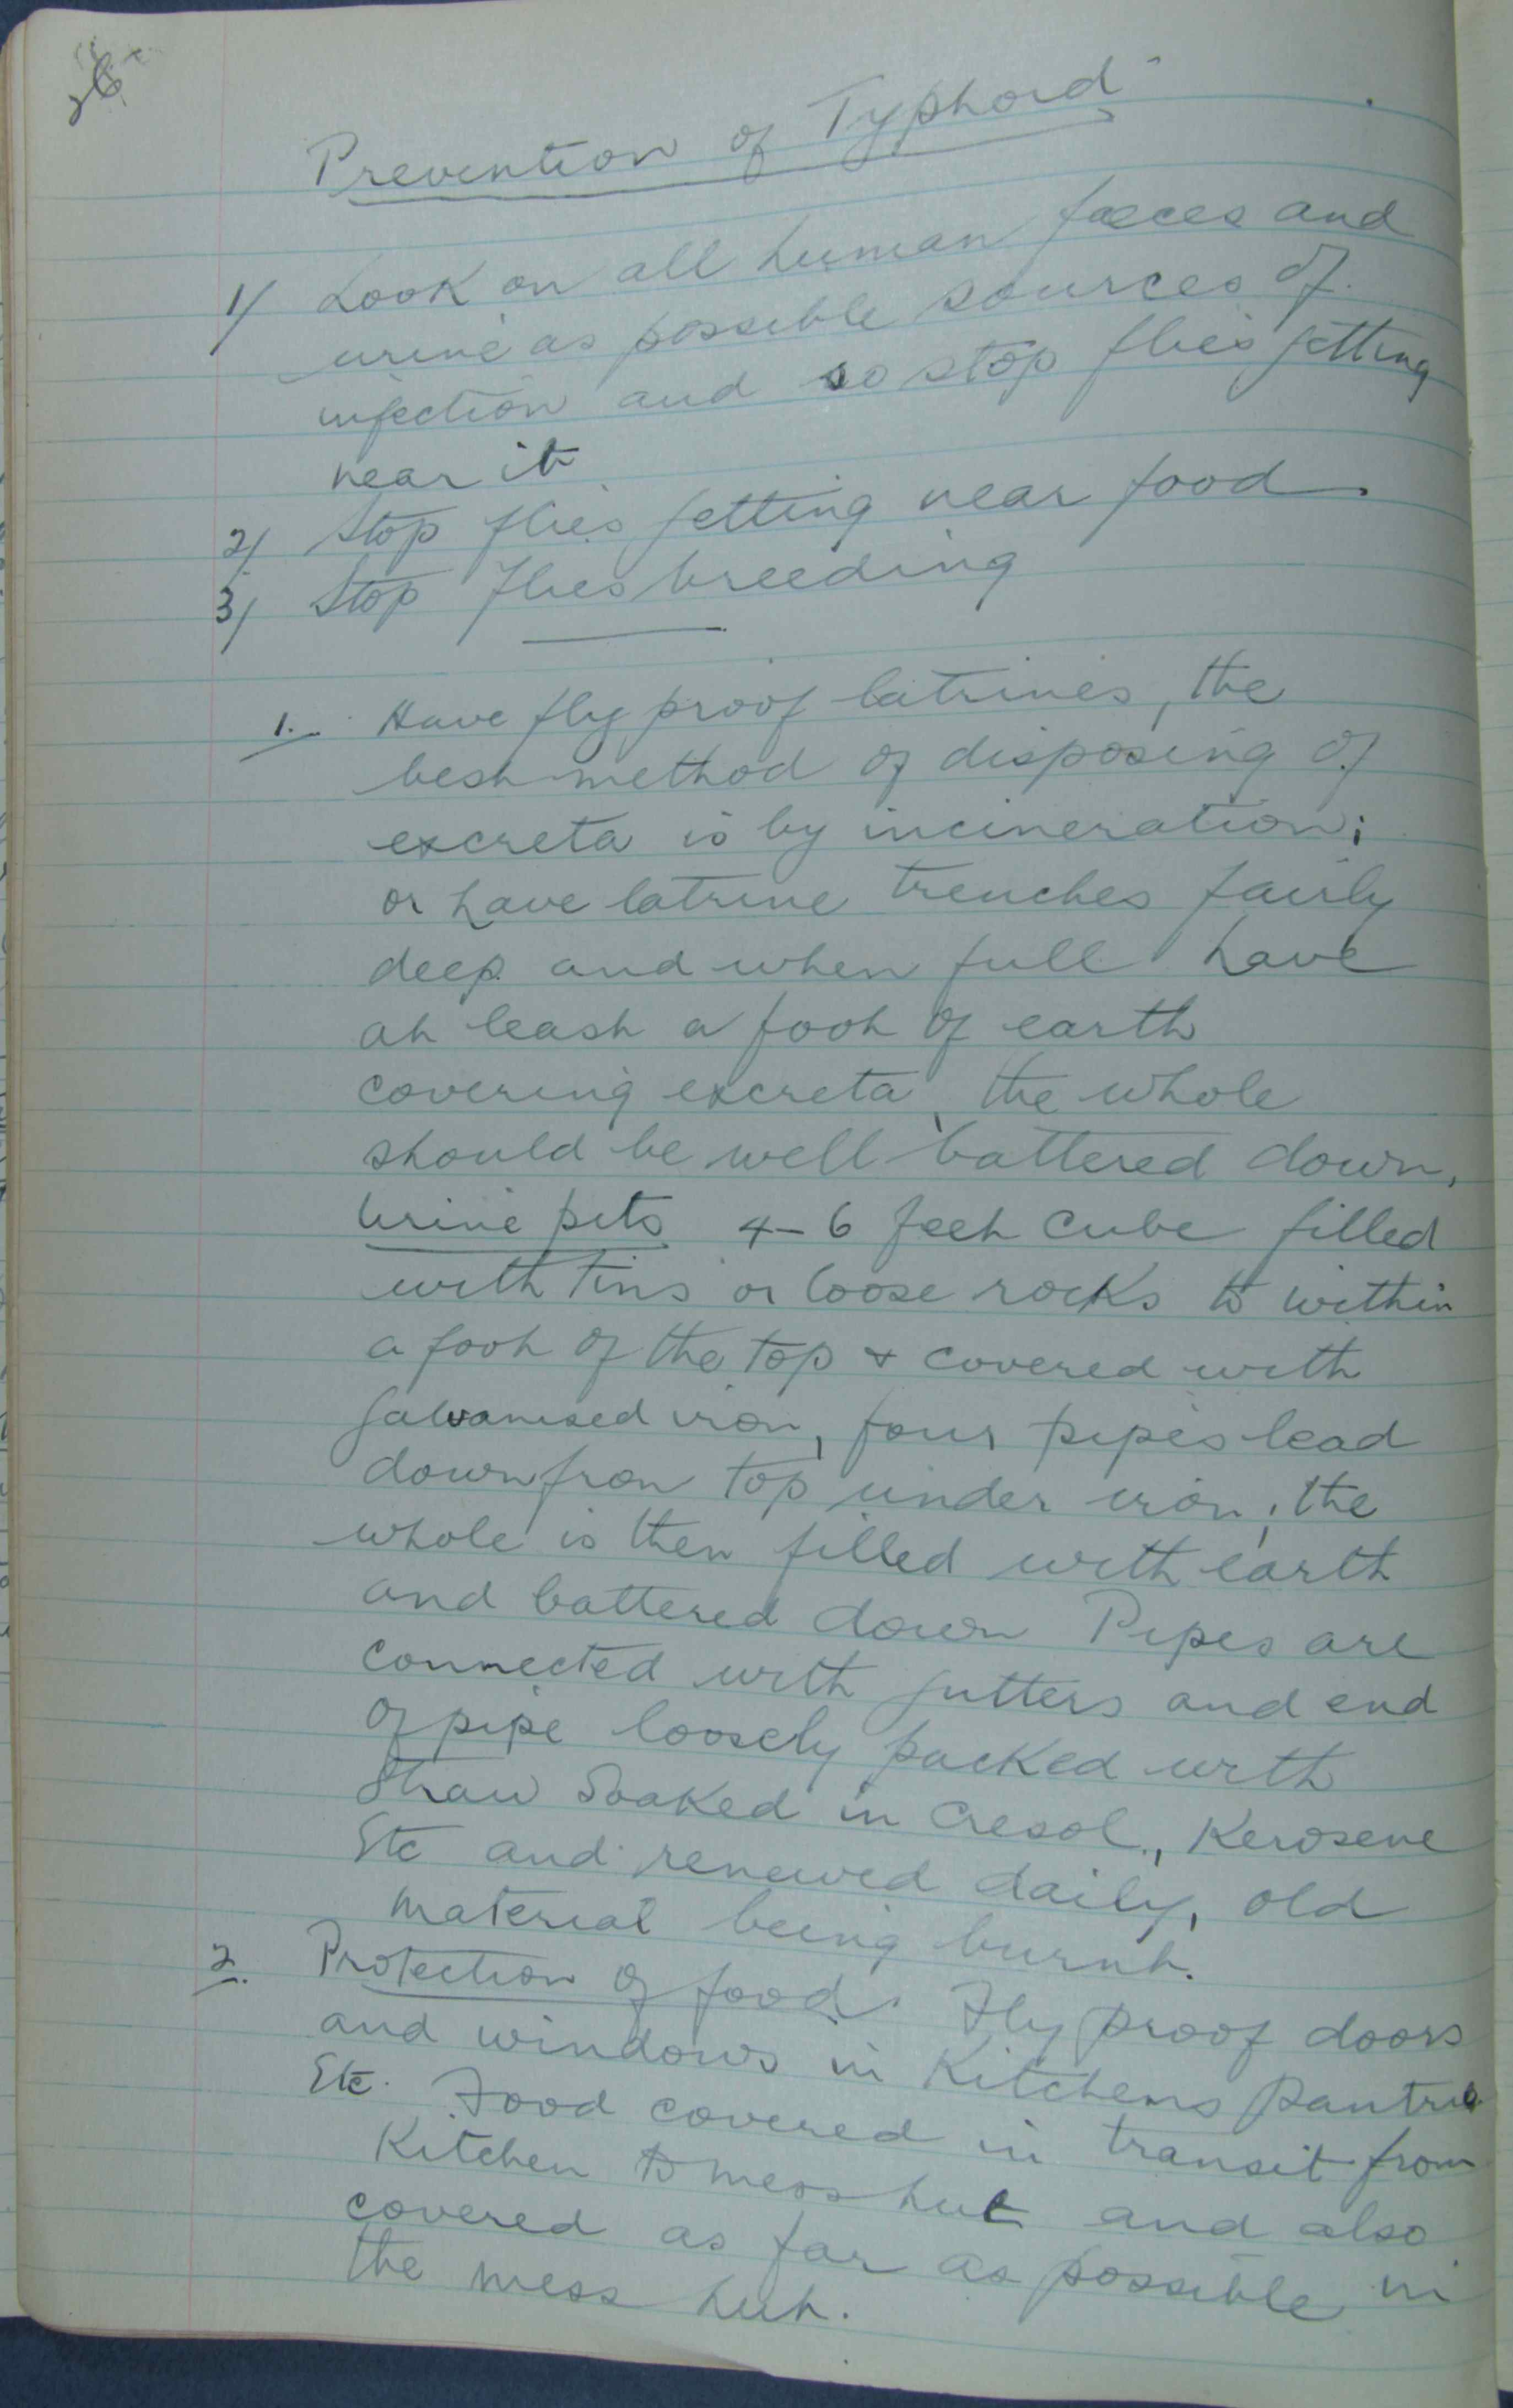 26
Prevention of Typhoid
1/ Look on all human fæces and
urine as possible sources of
infection and so stop flies getting
near it
2/ Stop flies getting near food.
3/ Stop flies breeding
1. Have fly proof latrines, the
best method of disposing of
excreta is by incineration;
or have latrine trenches fairly
deep and when full have
at least a foot of earth
covering excreta, the whole
should be well battered down,
Urine pits 4-6 feet cube filled
with tins or loose rocks to within
a foot of the top & covered with
galvanised iron, four pipes lead
down from top under iron, the
whole is then filled with earth
and battered down Pipes are
connected with gutters and end
of pipe loosely packed with
straw soaked in Cresol, Kerosene
Etc and renewed daily, old
material being burnt.
2. Protection of food. Fly proof doors
and windows in Kitchens pantries
Etc. Food covered in transit from
Kitchen to mess hut and also
covered as far as possible in
the mess hut.